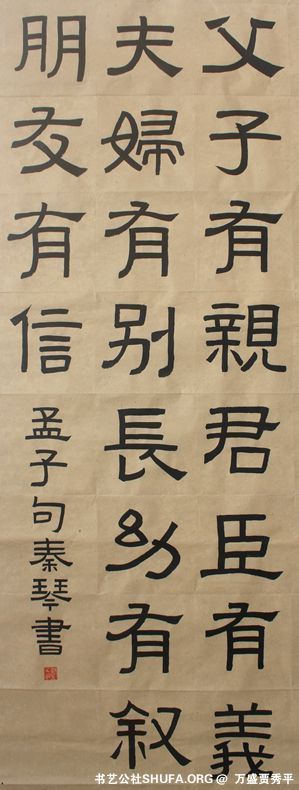 父子有親君臣有義
夫婦有别長幼有叙
朋友有信
孟子句秦琴書
书艺公社SHUFA.ORG @ 万盛贾秀平